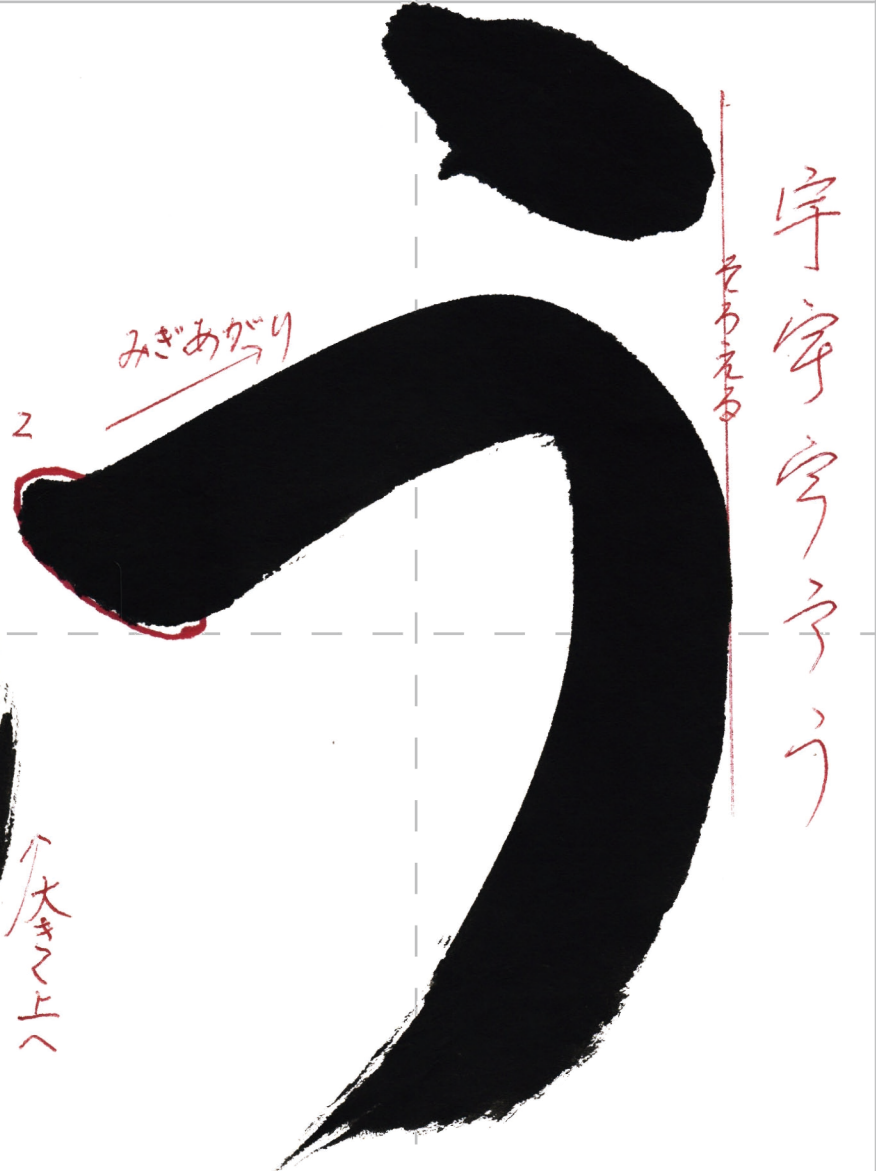 宇宇宇うう
そろえる
う
みぎあがり
2
大きく上へ